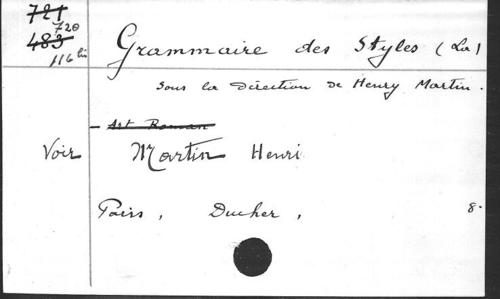 721
720
483
116 bis
Grammaire des Styles (La)
sous la Direction de Henry Martin.
- Art Roman
Voir Martin Henri
Paris, Ducher, 8.